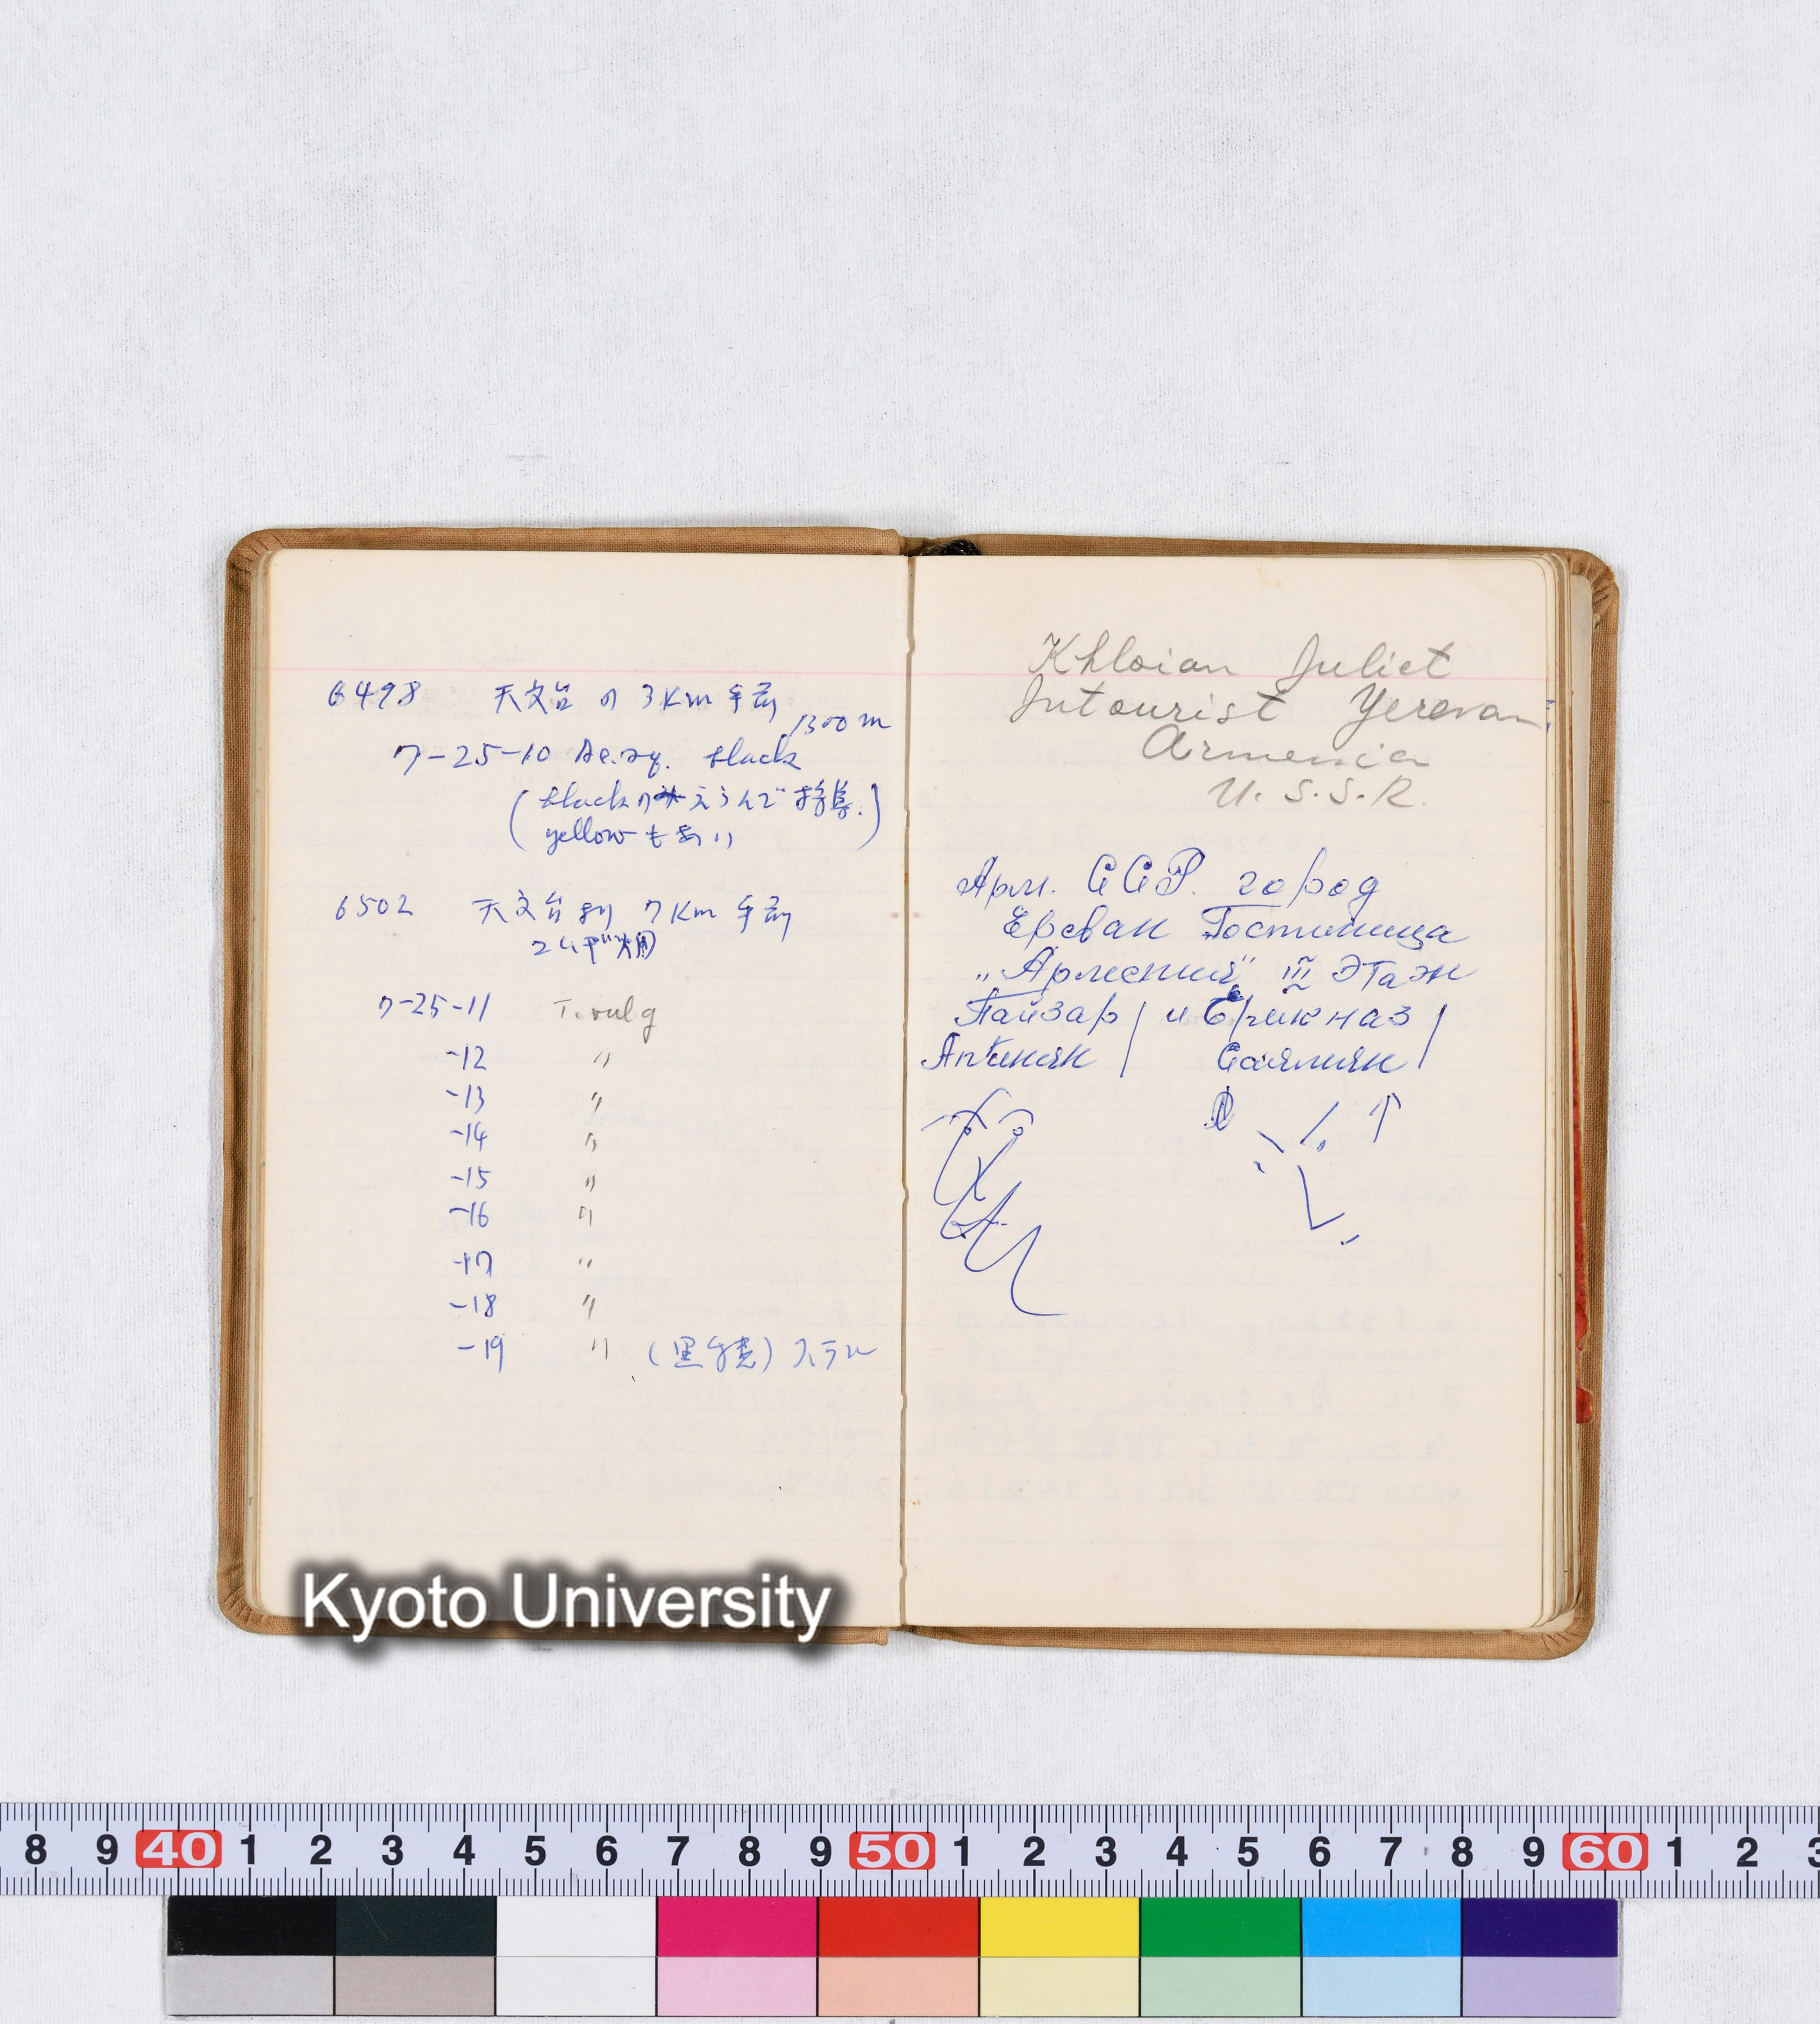 6498 天文台の3Km手前
1300m
7-25-10 Ae.sq. black
(blackのみえらんで採集.)
yellowもあり
6502 天文台より7Km手前
コムギ畑
7-25-11 T. vulg
-12 〃
-13 〃
-14 〃
-15 〃
-16 〃
-17 〃
-18 〃
-19 〃 (黒穂) ステル
Khloian Juliet
Intourist Yerevan
Armenia
U.S.S.R.
Арм. ССР. город
Ереван Гостиница
„Армения" III этаж
Пайзар / и Ерикназ /
Апинян / Саямян /
Kyoto University
8 9 40 1 2 3 4 5 6 7 8 9 50 1 2 3 4 5 6 7 8 9 60 1 2 3